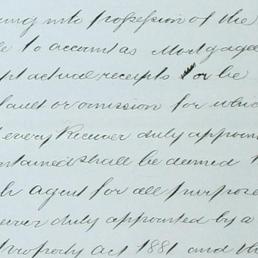 ing into possession of the
to account as Mortgagee
pt actual receipts or be
fault or omission for which
every Receiver duly appoin
ntained shall be deemed t
h agent for all purpose
eiver duly appointed by a
roperty Act 1881 and th